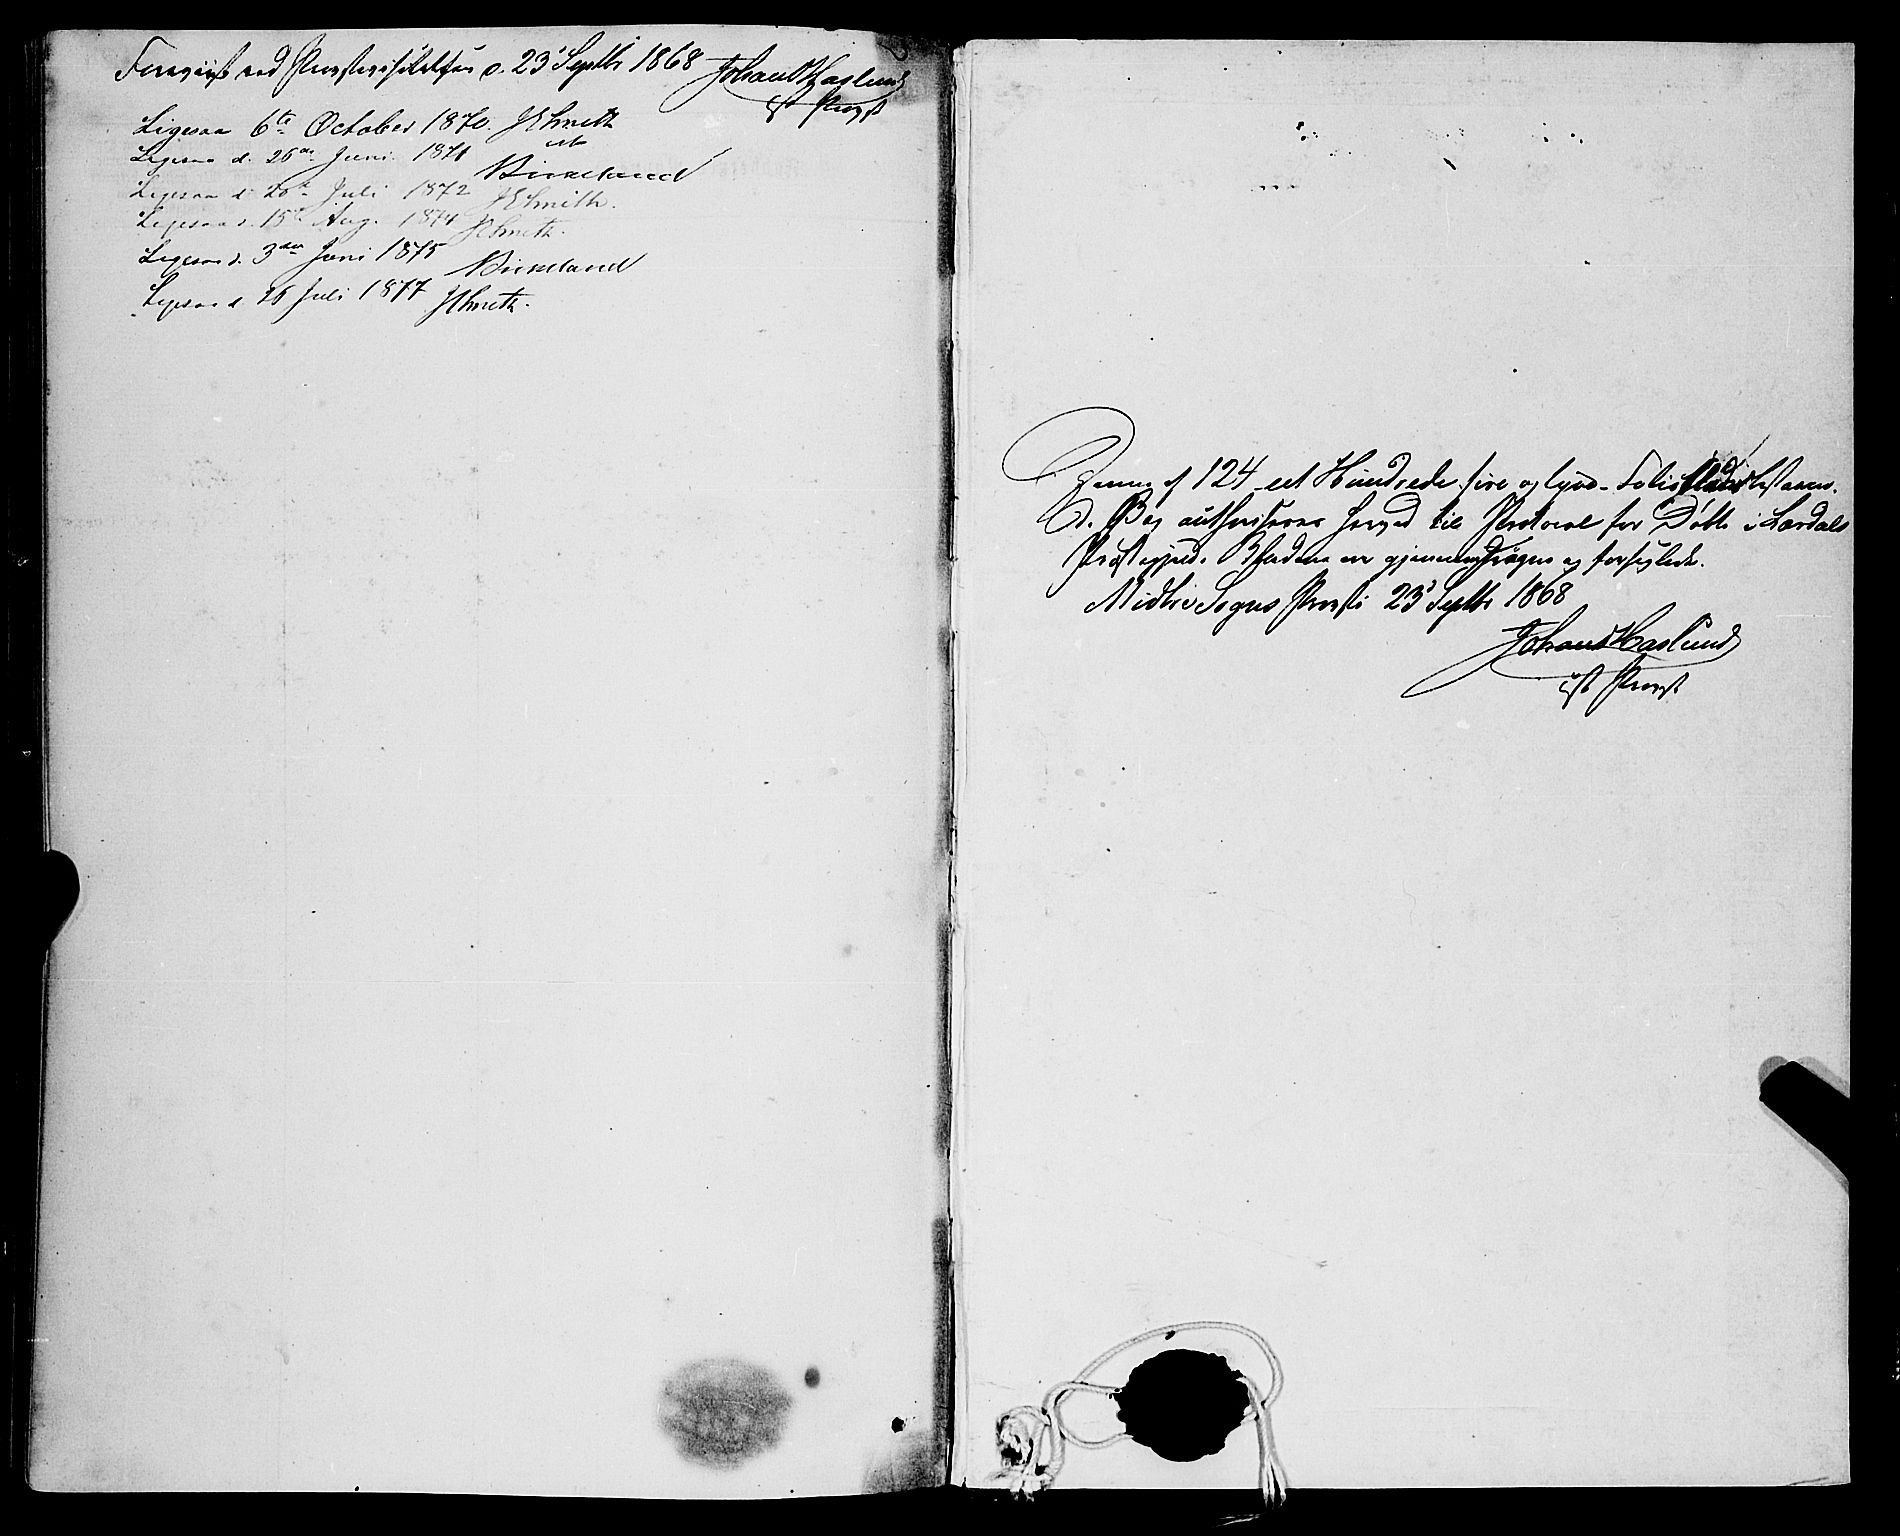 Foreviist ved Provstevisitatsen d. 23 Septbr 1868 Johan Haslund
cst Provst
Ligesaa 6te October 1870. JESmith
cst
Ligesaa d. 26de Juni 1871 Birkeland
Ligesaa d. 20de Juli 1872 JESmith.
Ligesaa d. 15de Aug. 1874 JESmith.
Ligesaa d. 3die Juni 1875 Birkeland
Ligesaa d. 26 Juli 1877 JESmith.
Denne af 124 et Hundrede fire og tyve Folioblade bestaaen-
de Bog authoriseres herved til Protocol for Døbte i Lærdals
Præstegjeld. Bladene ere gjennemdragne og forseglede.
Midtre Sogns Provsti 23 Septbr 1868
Johan Haslund
cst Provst